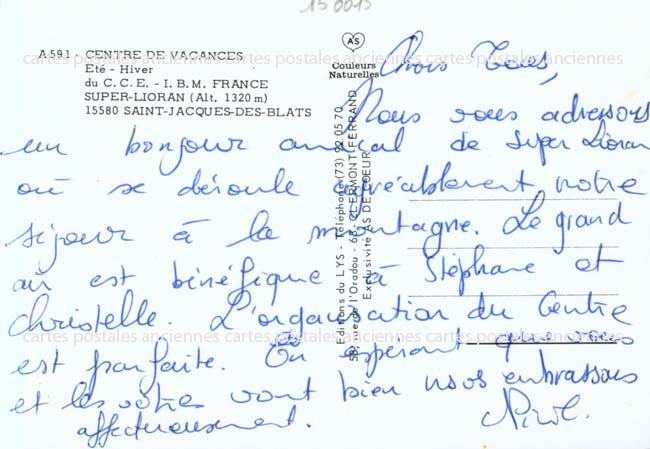 150015
A 591 - CENTRE DE VACANCES
Eté - Hiver
du C. C. E. - I. B. M. FRANCE
SUPER-LIORAN (Alt. 1320 m)
15580 SAINT-JACQUES-DES-BLATS
AS
Couleurs
Naturelles
Editions du LYS - Téléphone (73) 92 05 70
58, Rue de l'Oradou - 63 CLERMONT-FERRAND
Exclusivité AS DE COEUR
cartes postales anciennes cartes postales anciennes cartes postales anciennes
Nous vous adressons
un bonjour amical de Super Lioran
où se déroule agréablement notre
séjour à la montagne. Le grand
air est bénéfique à Stéphane et
Christelle. L'organisation du Centre
est parfaite. En espérant que vous
et les vôtres vont bien nous embrassons
affectueusement.
cartes postales anciennes cartes postales anciennes cartes postales anciennes